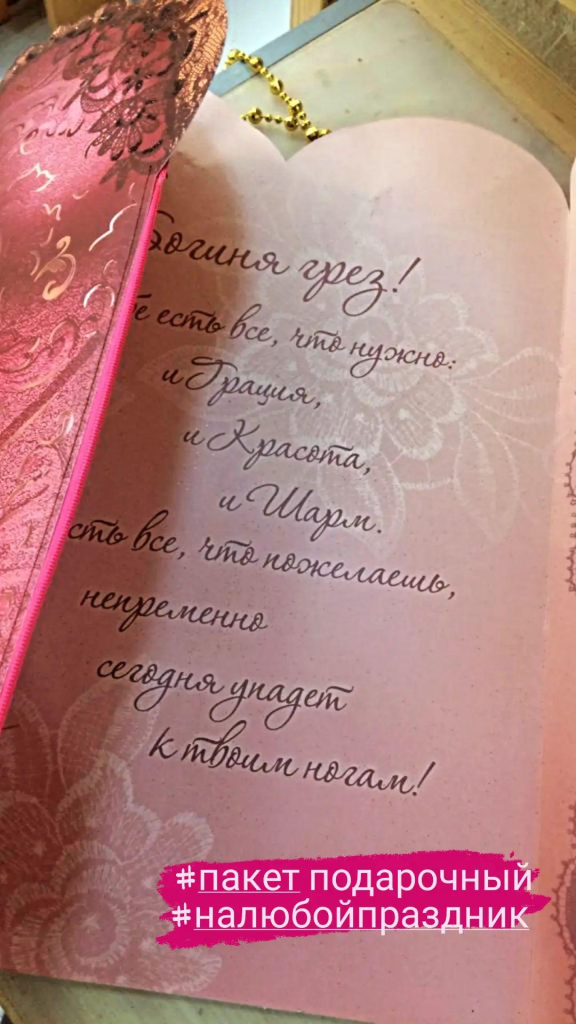 Богиня грез!
есть все, что нужно:
и Грация,
и Красота,
и Шарм.
все, что пожелаешь,
непременно
сегодня упадет
к твоим ногам!
#пакет подарочный
#налюбойпраздник